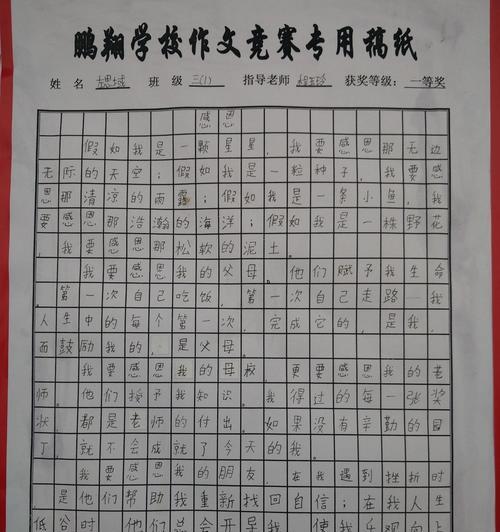 鹏翔学校作文竞赛专用稿纸
姓 名 班 级 三(1) 指导老师 获奖等级: 一等奖
感恩
假如我是一颗星星,我要感恩那无边
无际的天空;假如我是一粒种子,我要感
恩那清凉的雨露;假如我是一条小鱼,我
要感恩那浩瀚的海洋;假如我是一株野花
,我要感恩那松软的泥土。
我要感恩我的父母。他们赋予我生命
。第一次自己吃饭,第一次自己走路…我
人生中的每个第一次,完成它的,是我,
而鼓励我的,是父母。
我要感恩我的母校,更要感恩我的老
师。他们授予我知识。我得过的每一张奖
状,都是老师的付出。如果没有辛勤的园
丁,就不会成就了今天的我。
我要感恩我的朋友,在我遇到挫折时
,是他们帮助我重新找回自信;在我人生
低谷时,他们总会开导我,使我乐观向上